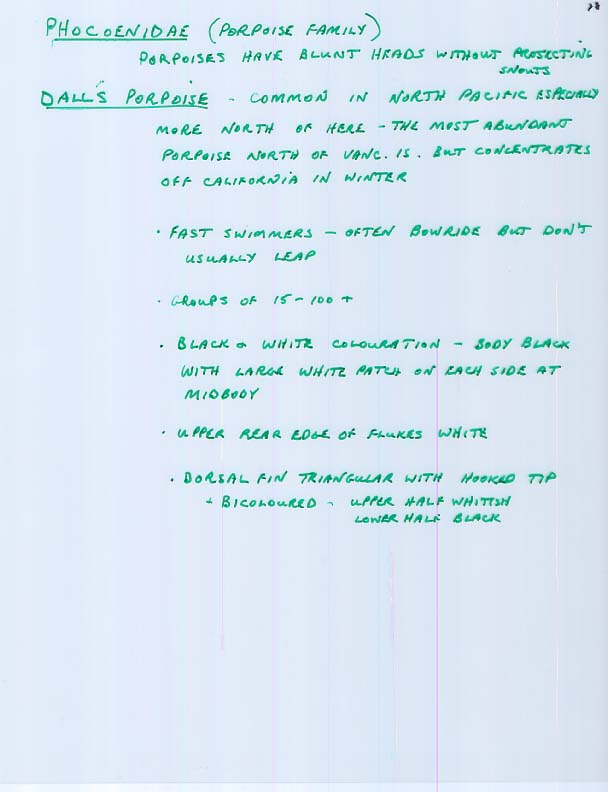 PHOCOENIDAE (PORPOISE FAMILY)
PORPOISES HAVE BLUNT HEADS WITHOUT PROJECTING
SNOUTS
DALL'S PORPOISE - COMMON IN NORTH PACIFIC ESPECIALLY
MORE NORTH OF HERE - THE MOST ABUNDANT
PORPOISE NORTH OF VANC. IS. BUT CONCENTRATES
OFF CALIFORNIA IN WINTER
· FAST SWIMMERS - OFTEN BOWRIDE BUT DON'T
USUALLY LEAP
· GROUPS OF 15-100+
· BLACK & WHITE COLOURATION - BODY BLACK
WITH LARGE WHITE PATCH ON EACH SIDE AT
MIDBODY
· UPPER REAR EDGE OF FLUKES WHITE
· DORSAL FIN TRIANGULAR WITH HOOKED TIP
+ BICOLOURED - UPPER HALF WHITISH
LOWER HALF BLACK